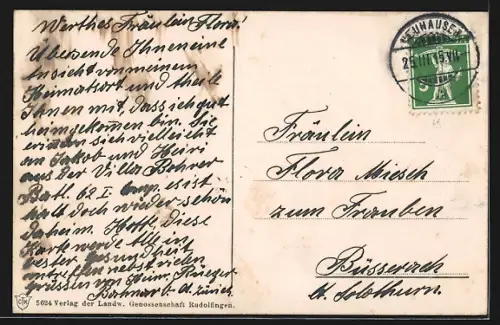 Werthes Fräulein Flora!
Übersende Ihnen eine
Ansicht von meinem
Heimatsort und theile
Ihnen mit, dass ich gut
heimgekommen bin. Sie
erinnern sich vielleicht
an Jakob und Heiri
aus der Villa Bohrer
Batl. 62 I Comp. es ist
halt doch wieder schön
daheim. Hoffe, diese
Karte werde Alle in
bester Gesundheit
antreffen nebst vielen
Grüssen von Heinr.
Kt. Zürich.
5624 Verlag der Landw. Genossenschaft Rudolfingen.
NEUHAUSEN
25.III.15.VII
Fräulein
Flora Miesch
zum Trauben
Büsserach
Kt. Solothurn.